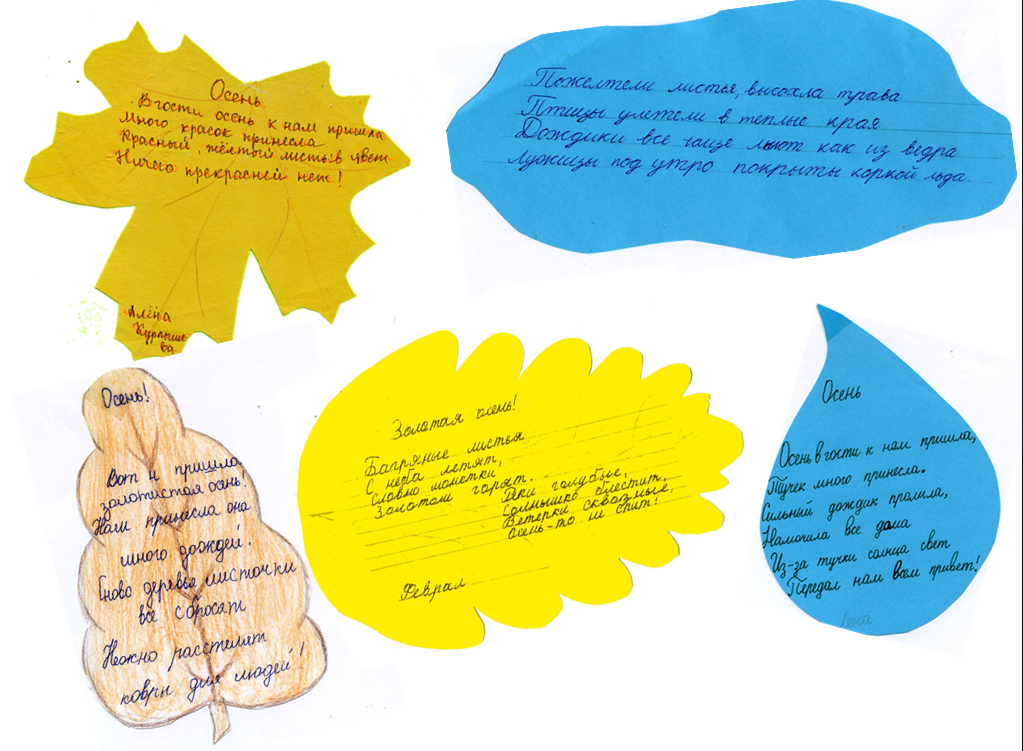 Осень
В гости осень к нам пришла
Много красок принесла
Красный, жёлтый листьев цвет
Ничего прекрасней нет!
Алёна
Курпыше
ва
Пожелтели листья, высохла трава
Птицы улетели в теплые края
Дождики все чаще льют как из ведра
Лужицы под утро покрыты коркой льда.
Осень!
Вот и пришла
золотистая осень.
Нам принесла она
много дождей!
Снова деревья листочки
все сбросят
Нежно расстелят
ковры для людей!
Золотая осень!
Багряные листья
С неба летят,
Словно монетки
Золотом горят.
Реки голубые,
Солнышко блестит.
Ветерки сквозные,
Осень-то не спит!
Феврал
Осень
Осень в гости к нам пришла,
Тучек много принесла.
Сильный дождик пролила,
Намочила все дома
Из-за тучки солнца свет
Передал нам всем привет!
Лена